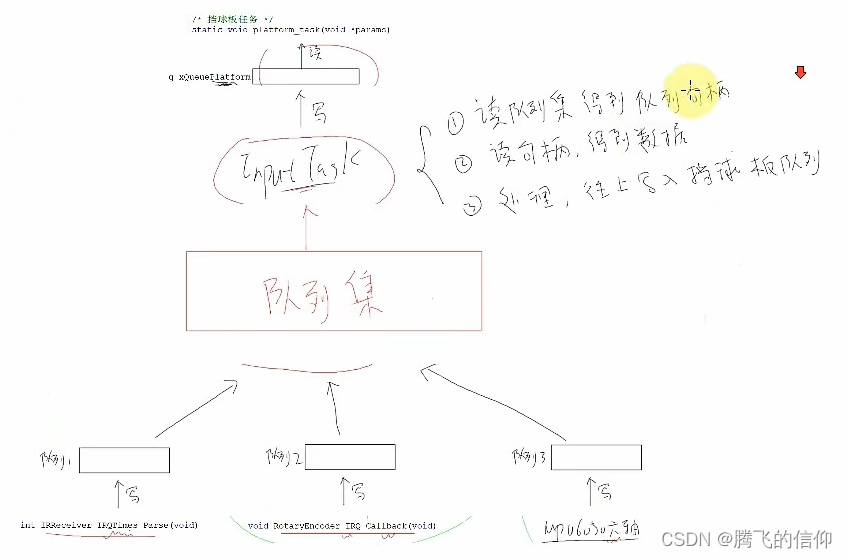 /* 挡球板任务 */
static void platform_task(void *params)
读
g_xQueuePlatform
写
① 读队列集得到队列句柄
InputTask
② 读句柄,得到数据
③ 处理,往上写入挡球板队列
队列集
队列1
队列2
队列3
写
写
写
int IRReceiver_IRQTimes_Parse(void)
void RotaryEncoder_IRQ_Callback(void)
MPU6050六轴
CSDN @腾飞的信仰